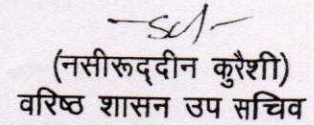 -Sd/-
(नसीरूद्दीन कुरैशी)
वरिष्ठ शासन उप सचिव